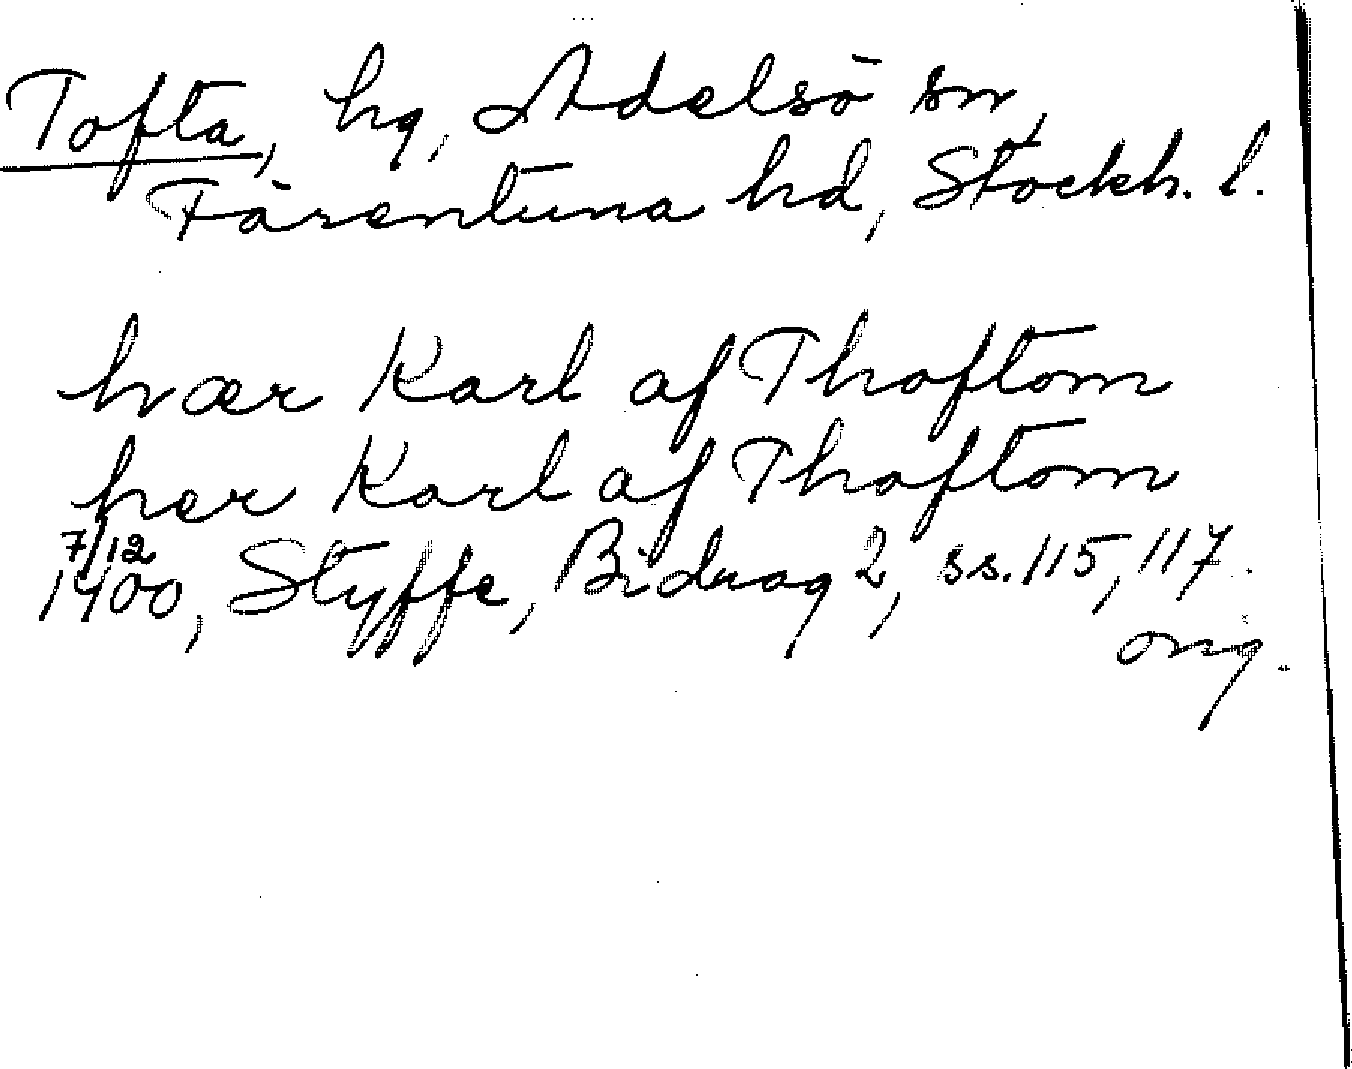 Tofta, hg, Adelsö sn,
Färentuna hd, Stockh. l.
hvær Karl af Thoftom
her Karl af Thoftom
7/12
1400, Styffe, Bidrag 2, ss. 115, 117.
orig.